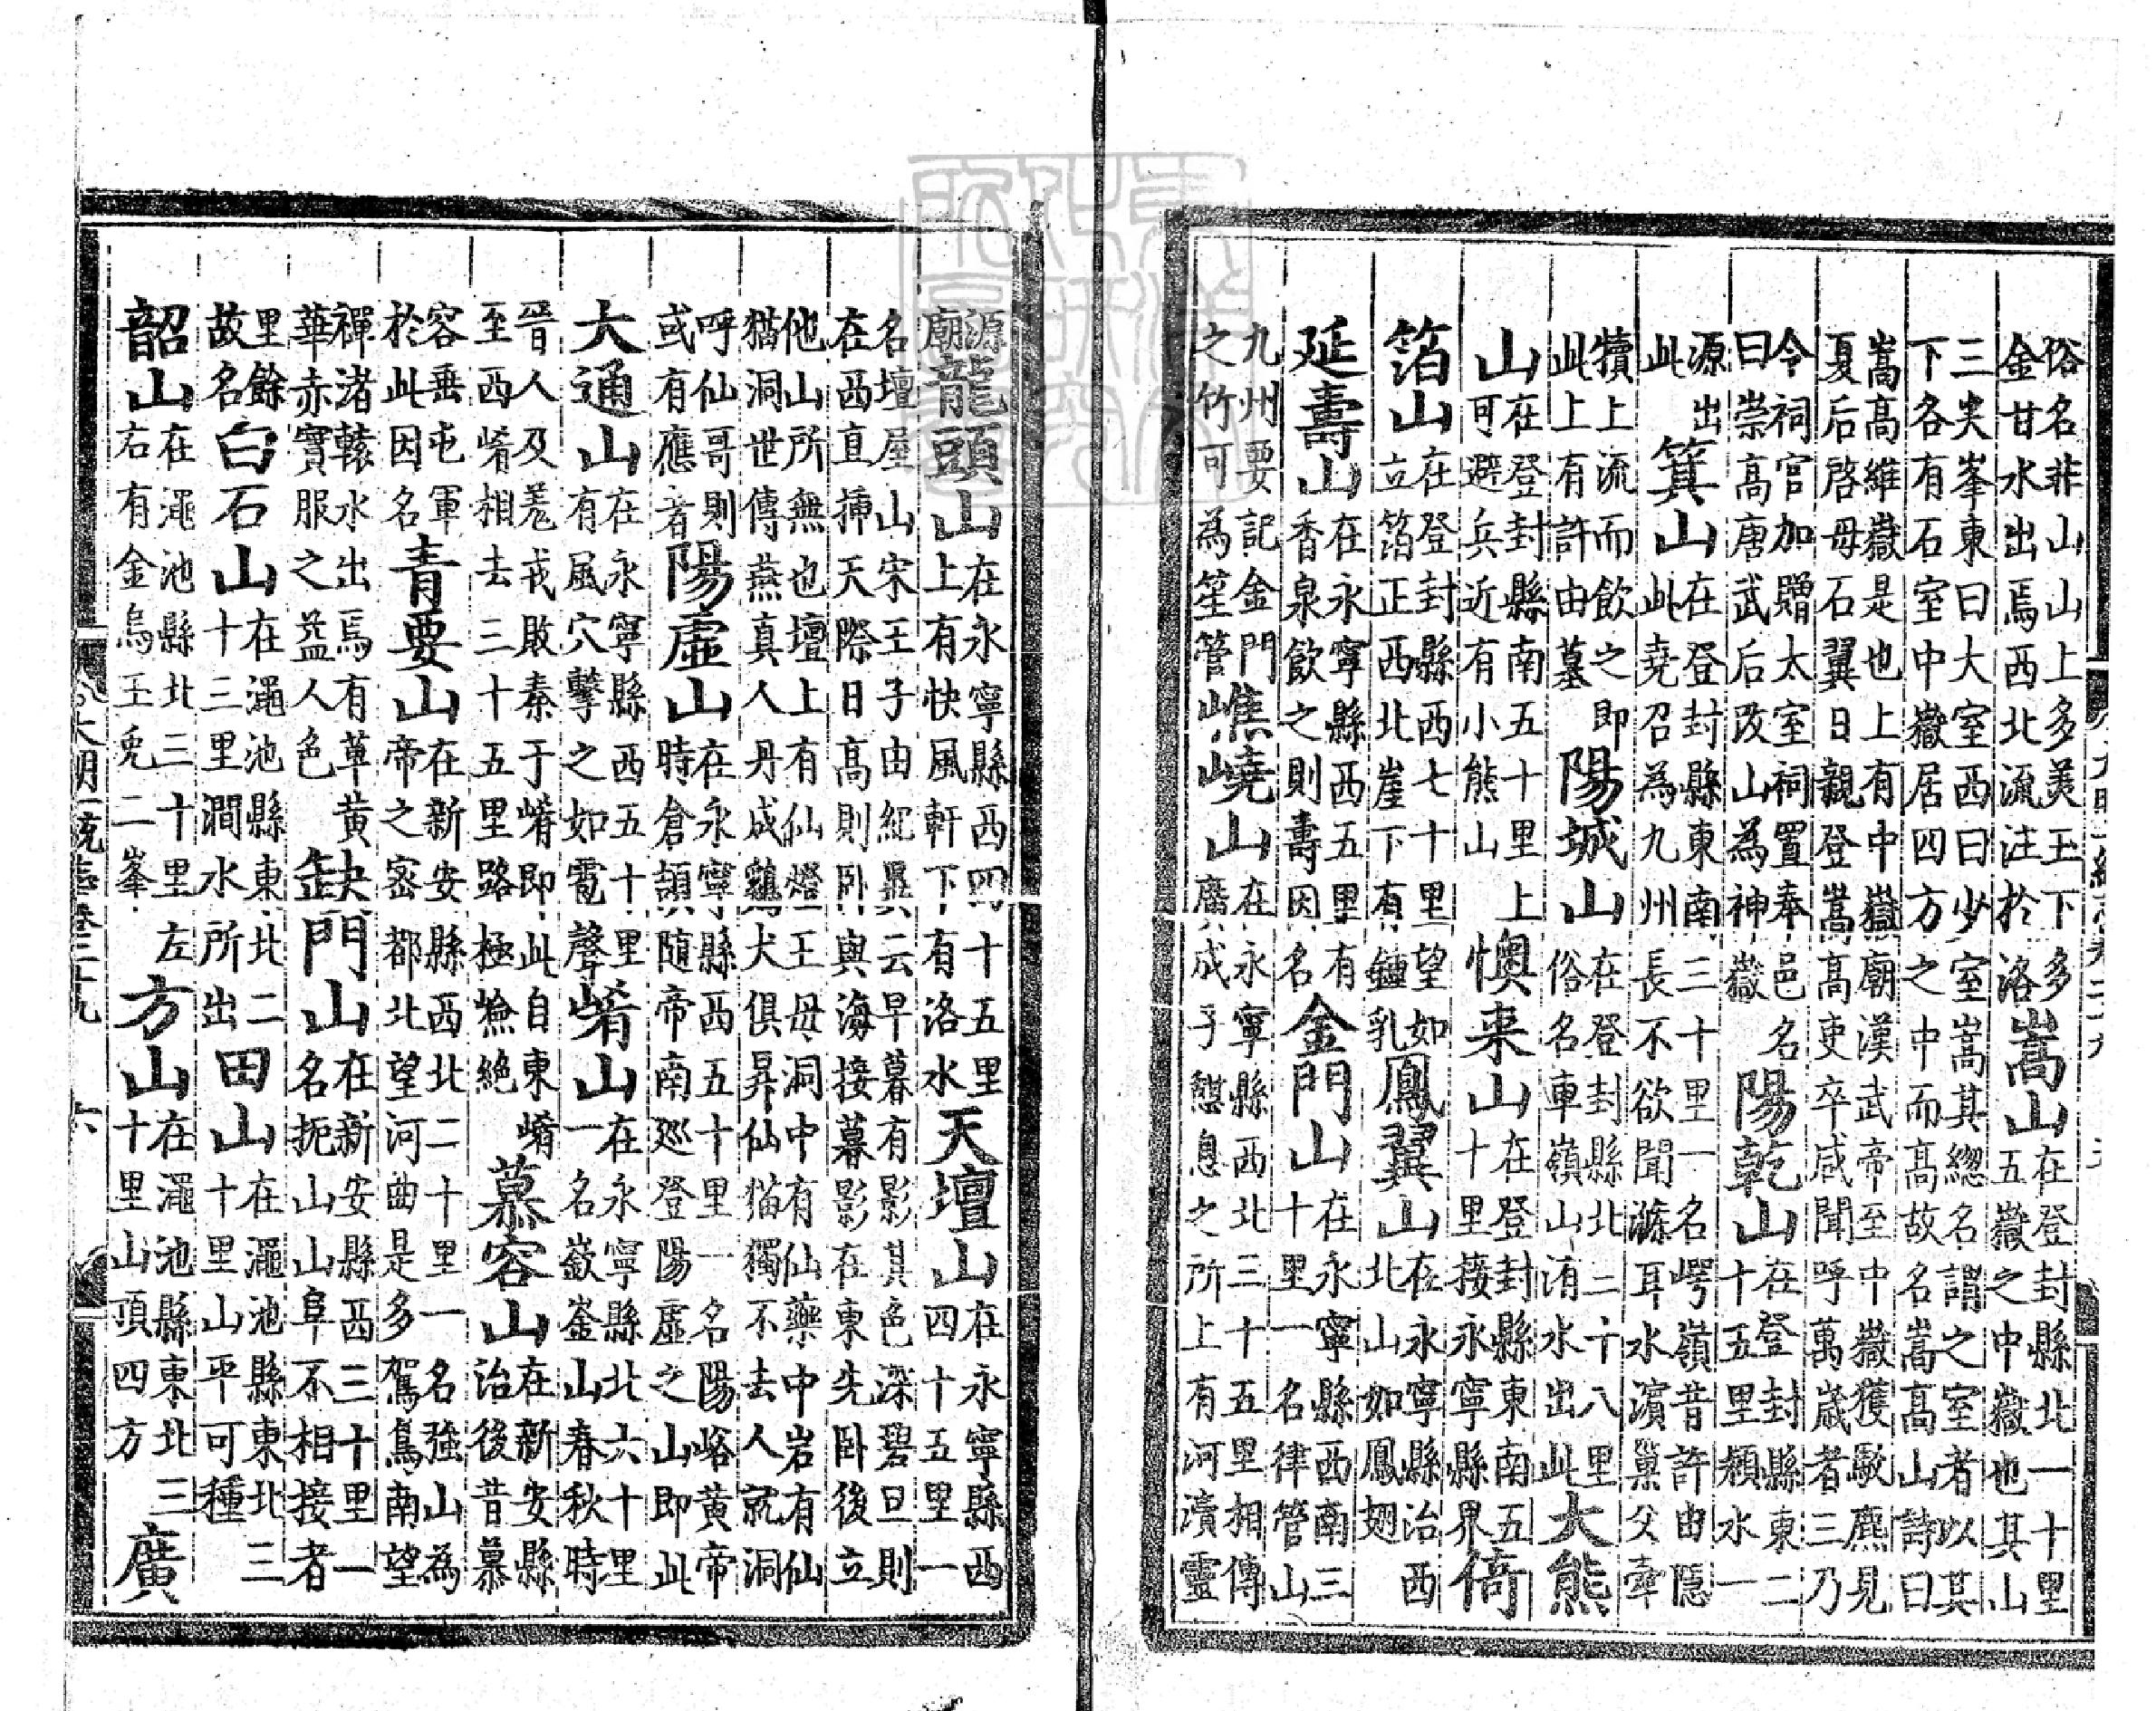 俗名非山山上多美玉下多
金甘水出焉西北流注於洛嵩山在登封縣北一十里
五嶽之中嶽也其山
三尖峯東曰大室西曰少室嵩其總名謂之室者以其
下各有石室中嶽居四方之中而高故名嵩高山詩曰
嵩高維嶽是也上有中嶽廟漢武帝至中嶽獲駮麃見
夏后啓母石翼日親登嵩高吏卒咸聞呼萬歲者三乃
令祠官加贈太室祠置奉邑名
曰崇高唐武后改山為神嶽陽乾山在登封縣東二
十五里潁水一
源出
此箕山在登封縣東南三十里一名崿嶺昔許由隱
此堯召為九州長不欲聞滌耳水濵巢父牽
犢上流而飲之即
此上有許由墓陽城山在登封縣北二十八里
俗名車嶺山洧水出此大熊
山在登封縣南五十里上
可避兵近有小熊山懊来山在登封縣東南五
十里接永寧縣界倚
箔山在登封縣西七十里望如
立箔正西北崖下有鍾乳鳳翼山在永寧縣治西
北山如鳳翅
延壽山在永寧縣西五里有
香泉飲之則壽因名金門山在永寧縣西南三
十里一名律管山
九州要記金門
之竹可為笙管嶕嶢山在永寧縣西北三十五里相傳
廣成子憇息之所上有河瀆靈
源
廟龍頭山在永寧縣西四十五里
上有快風軒下有洛水天壇山在永寧縣西
四十五里一
名壇屋山宋王子由紀異云早暮有影其色深碧旦則
在西直挿天際日高則卧與海接暮影在東先卧後立
他山所無也壇上有仙燈王母洞中有仙藥中岩有仙
猫洞世傳燕真人丹成鷄犬俱昇仙猫獨不去人就洞
呼仙哥則
或有應者陽虛山在永寧縣西五十里一名陽峪黃帝
時倉頡随帝南廵登陽虛之山即此
大通山在永寧縣西五十里
有風穴擊之如雹聲崤山在永寧縣北六十里
一名嶔崟山春秋時
晉人及羗戎敗秦于崤即此自東崤
至西崤相去三十五里路極嶮絶慕容山在新安縣
治後昔慕
容垂屯軍
於此因名青要山在新安縣西北二十里一名強山為
帝之宻都北望河曲是多駕鳥南望
禪渚轅水出焉有草黄
華赤實服之益人色缺門山在新安縣西三十里一
名扼山山阜不相接者
里餘
故名白石山在澠池縣東北二
十三里澗水所出田山在澠池縣東北三
十里山平可種
韶山在澠池縣北三十里左
右有金烏玉兎二峯方山在澠池縣東北三
十里山頂四方廣